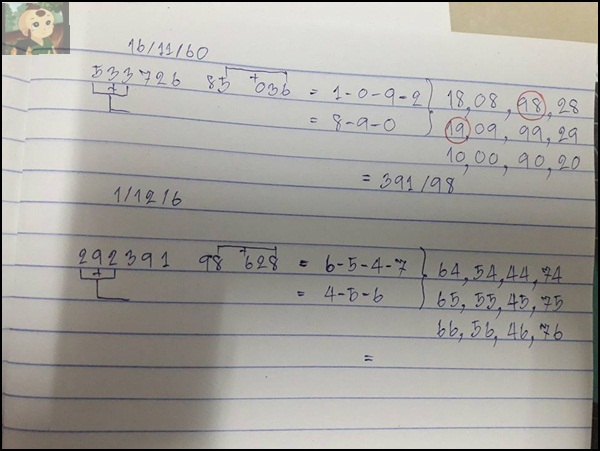 16/11/60
533726 85 + 036 = 1-0-9-2 } 18,08,98,28
+ = 8-9-0 } 19,09,99,29
10,00,90,20
= 391/98
1/12/6
292391 98 + 628 = 6-5-4-7 } 64,54,44,74
+ = 4-5-6 } 65,55,45,75
66,56,46,76
=